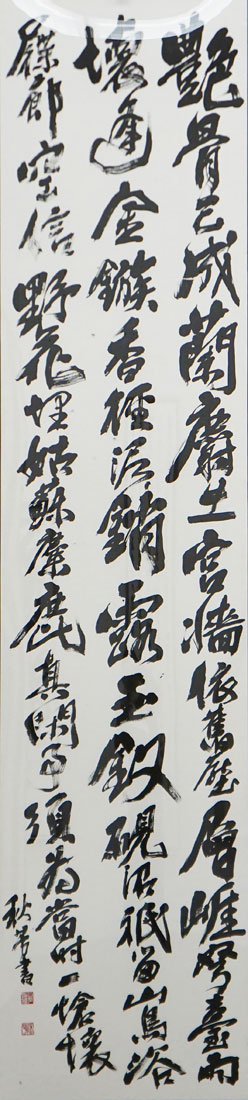 艷骨已成蘭麝土宮墻依舊壓層崕弩臺雨
壞逢金鏃香徑泥銷露玉釵硯沼祇留山鳥浴
屧廊空信野花埋姑蘇麋鹿真閑事須為當時一愴懷
秋 書